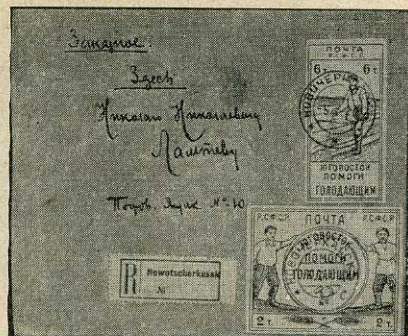 Заказное.
Здесь
Николаю Николаевичу
Лаптеву
Почтов. Ящик № 10
R Nowotscherkassk
№
ПОЧТА
6т. 6т.
НОВОЧЕРК
ЮГОВОСТОК
ПОМОГИ
ГОЛОДАЮЩИМ
Р.С.Ф.С.Р. ПОЧТА Р.С.Ф.С.Р.
ЮГОВОСТОК
ПОМОГИ
ГОЛОДАЮЩИМ
2т. 2т.